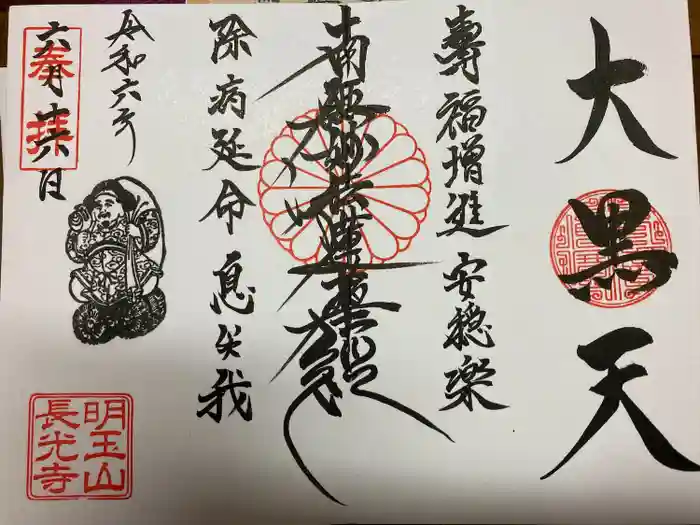 大黒天
壽福増進 安穏楽
南無妙法蓮華経
除病延命 息災我
令和六年
六月廿六日
奉拝
明玉山
長光寺